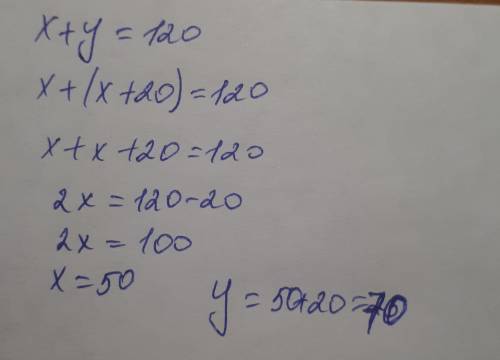 x+y=120
x+(x+20)=120
x+x+20=120
2x=120-20
2x=100
x=50
y=50+20=70